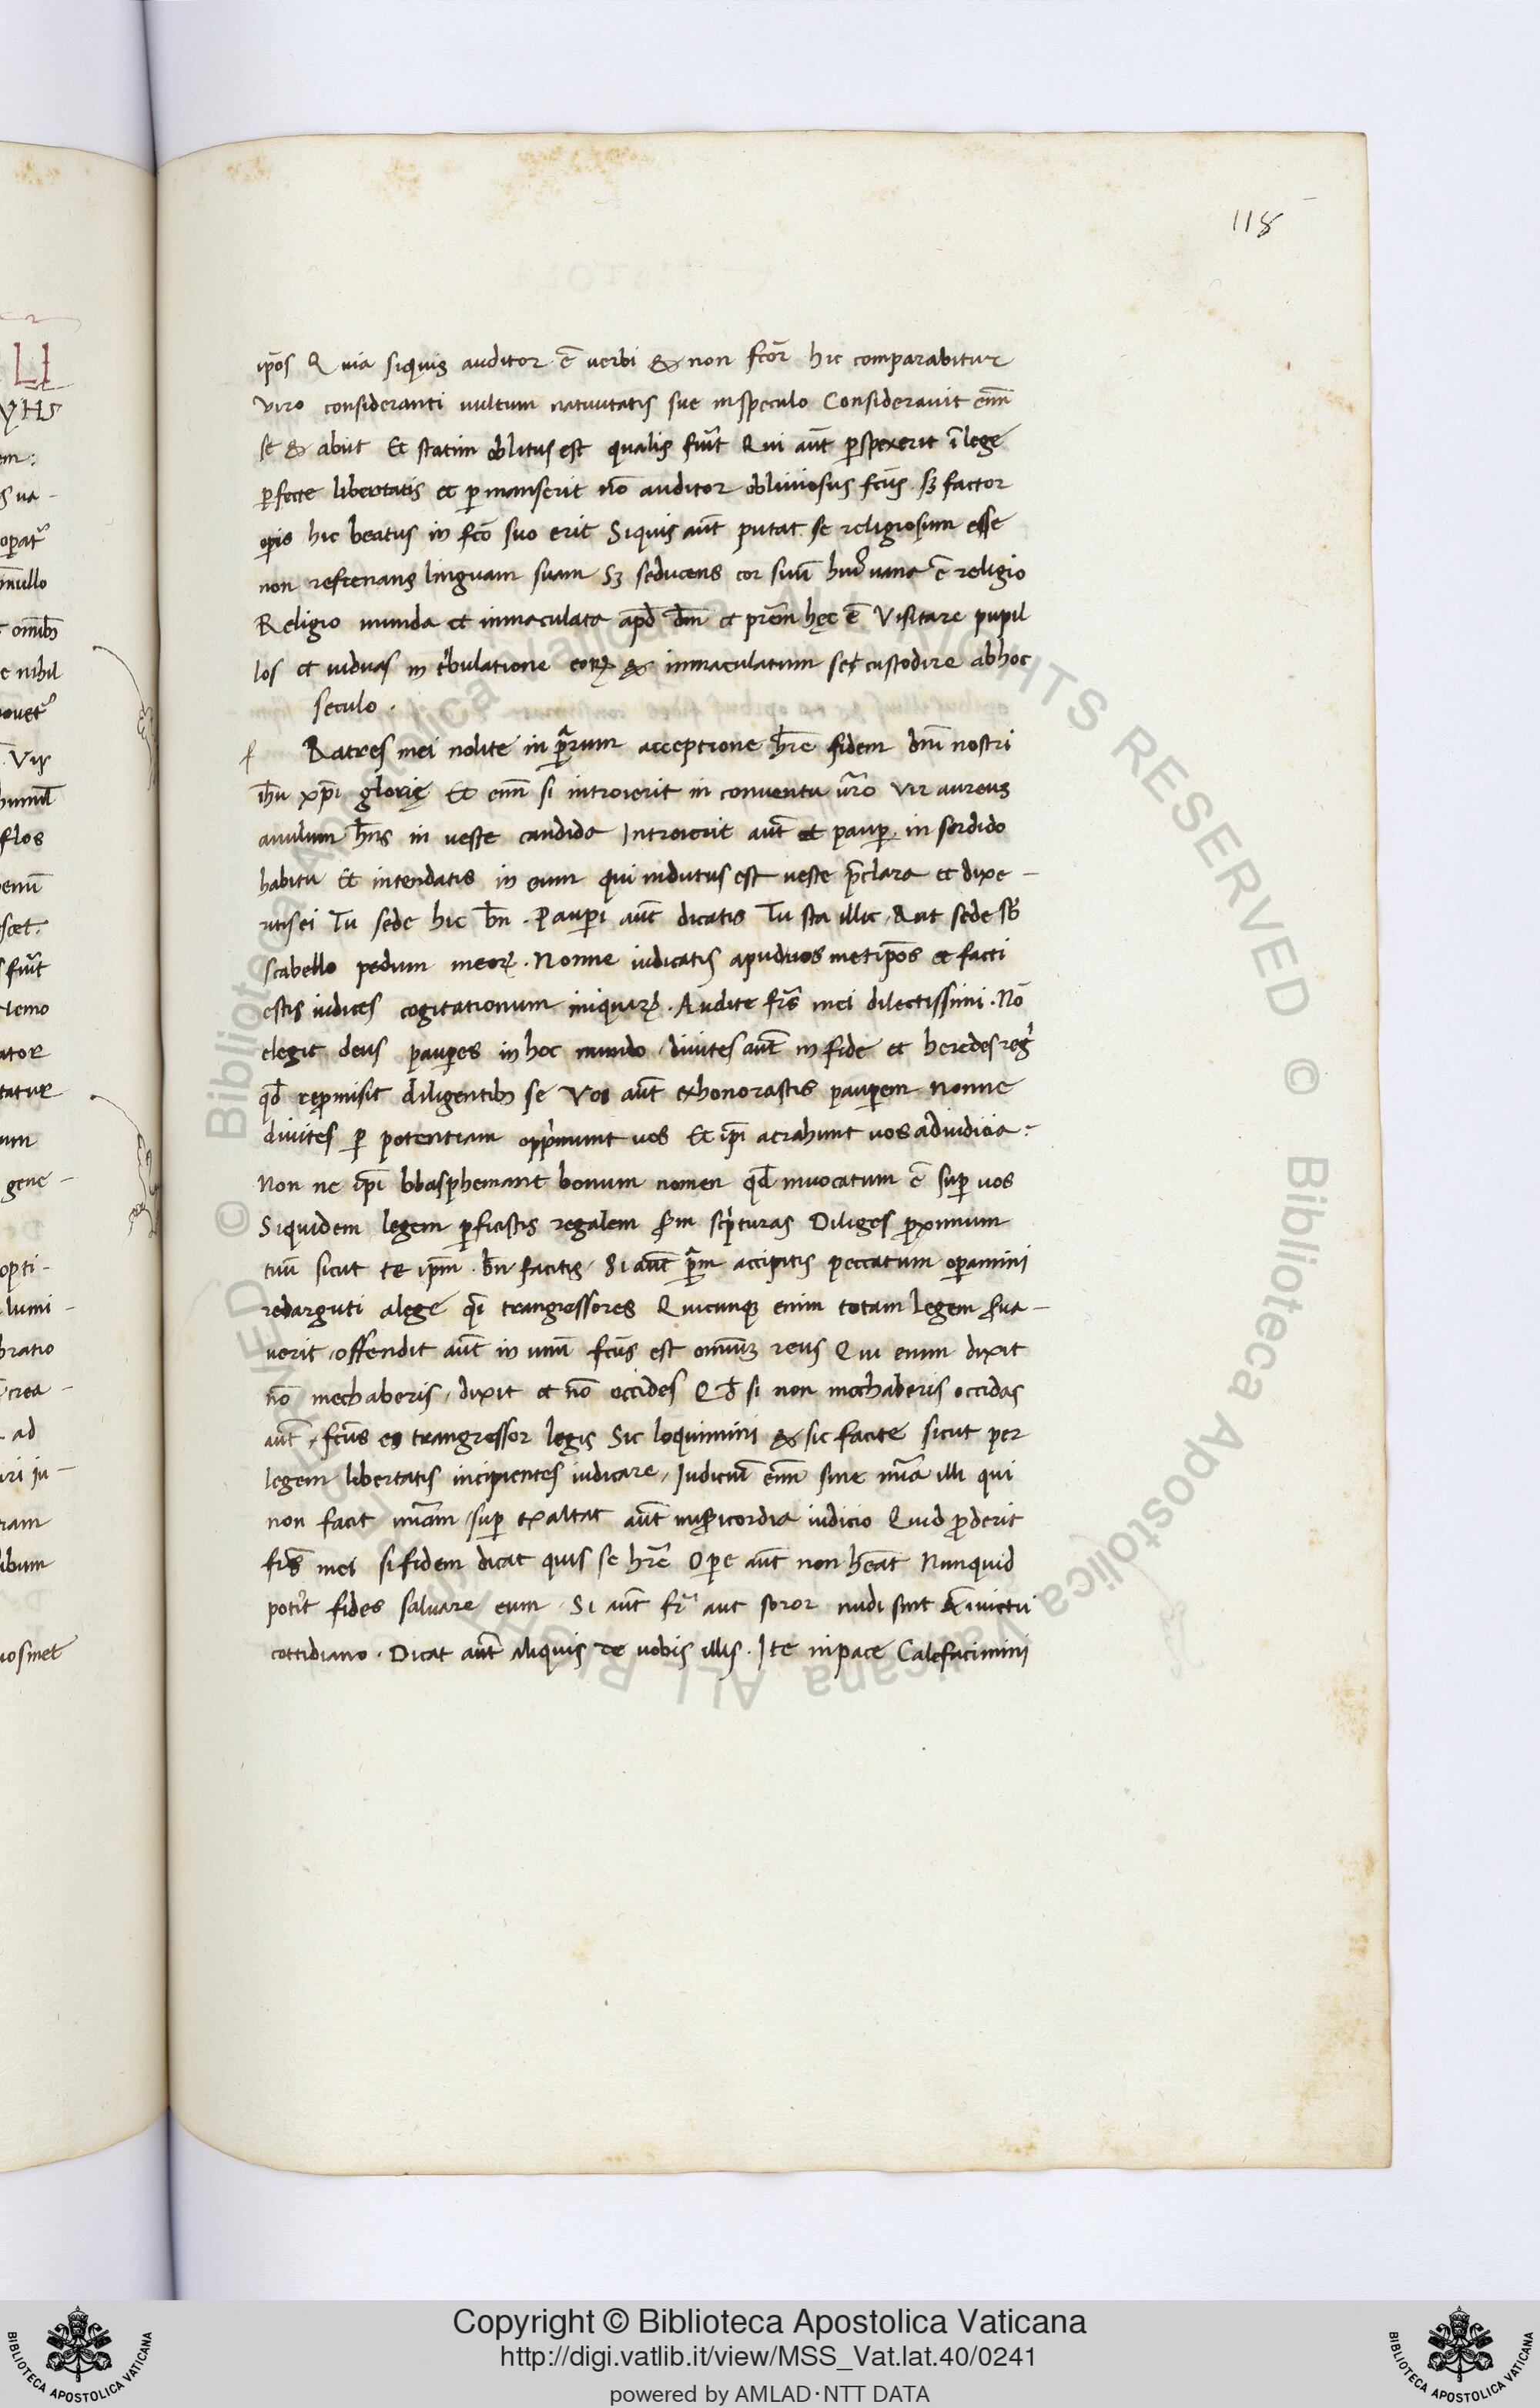 118
ip̄os Quia siquis auditor ē uerbi & non fc̄or hic comparabitur
viro consideranti uultum natiuitatis sue inspeculo Considerauit eni᷑
se & abiit Et statim oblitus est qualis fuit Qui aut̄ ꝑspexerit ī lege
ꝑfecte libertatis et ꝑmanserit nō auditor obliuiosus fc̄us. sꝫ factor
opis hic beatus in fc̄o suo erit Siquis aut̄ putat se religiosum esse
non refrenans linguam suam Sꝫ seducens cor suū hui᷑ uana ē religio
Religio munda et inmaculata apd̄ dm̄ et pr̄em hęc ē Visitare pupil
los et uiduas in tribulatione eorꝝ & inmaculatum se custodire abhoc
seculo.
f Ratres mei nolite in ꝑr̄arum acceptione hr̄e fidem dn̄i nostri
ih̄u xp̄i glorię Et eni᷑ si introierit in conuentu ur̄o vir aureus
anulum hn̄s in ueste candida Introierit aut̄ et pauꝑ in sordido
habitu Et intendatis in eum qui indutus est ueste p̄clara et dixe-
ritis ei Tu sede hic bn̄. Pauꝑi aut̄ dicatis Tu sta illic. Aut sede sb̄
scabello pedum meorꝝ. Nonne iudicatis apuduos metip̄os et facti
estis iudices cogitationum iniquarꝝ. Audite fr̄s mei dilectissimi. Nō
elegit deus pauꝑes in hoc mundo. diuites aut̄ in fide et heredes reḡ
qd̄ reꝓmisit diligentibꝫ se Vos aut̄ exhonorastis pauꝑem Nonne
diuites ꝑ potentiam opprimunt uos Et ip̄i atrahunt uos adiudicia:
Non ne ip̄i blasphemant bonum nomen qd̄ inuocatum ē suꝑ uos
Siquidem legem ꝑficistis regalem sm̄ scripturas Diliges ꝓximum
tuū sicut te ip̄m. bn̄ facitis. Si aut̄ ꝑr̄am accipitis peccatum oꝑamini
redarguti alege qi trangressores Quicunqꝫ enim totam legem serua-
uerit. offendit aut̄ in unū fc̄us est omniū reus Qui enim dixit
nō mechaberis. dixit et nō occides Qd̄ si non mechaberis occidas
aut̄. fc̄us es trangressor legis Sic loquimini & sic facite sicut per
legem libertatis incipientes iudicare. Iudiciū eni᷑ sine mīa illi qui
non facit mīam. suꝑ exaltat aut̄ miꝑicordia iudicio Quid ꝓderit
fr̄s mei si fidem dicat quis se hr̄e Opera aut̄ non heāt Nunquid
poterit fides saluare eum. Si aut̄ fr̄ aut soror nudi sint & uictu
cottidiano. Dicat aut̄ aliquis de uobis illis. Ite inpace Calefacimini
Copyright © Biblioteca Apostolica Vaticana
http://digi.vatlib.it/view/MSS_Vat.lat.40/0241
powered by AMLAD·NTT DATA